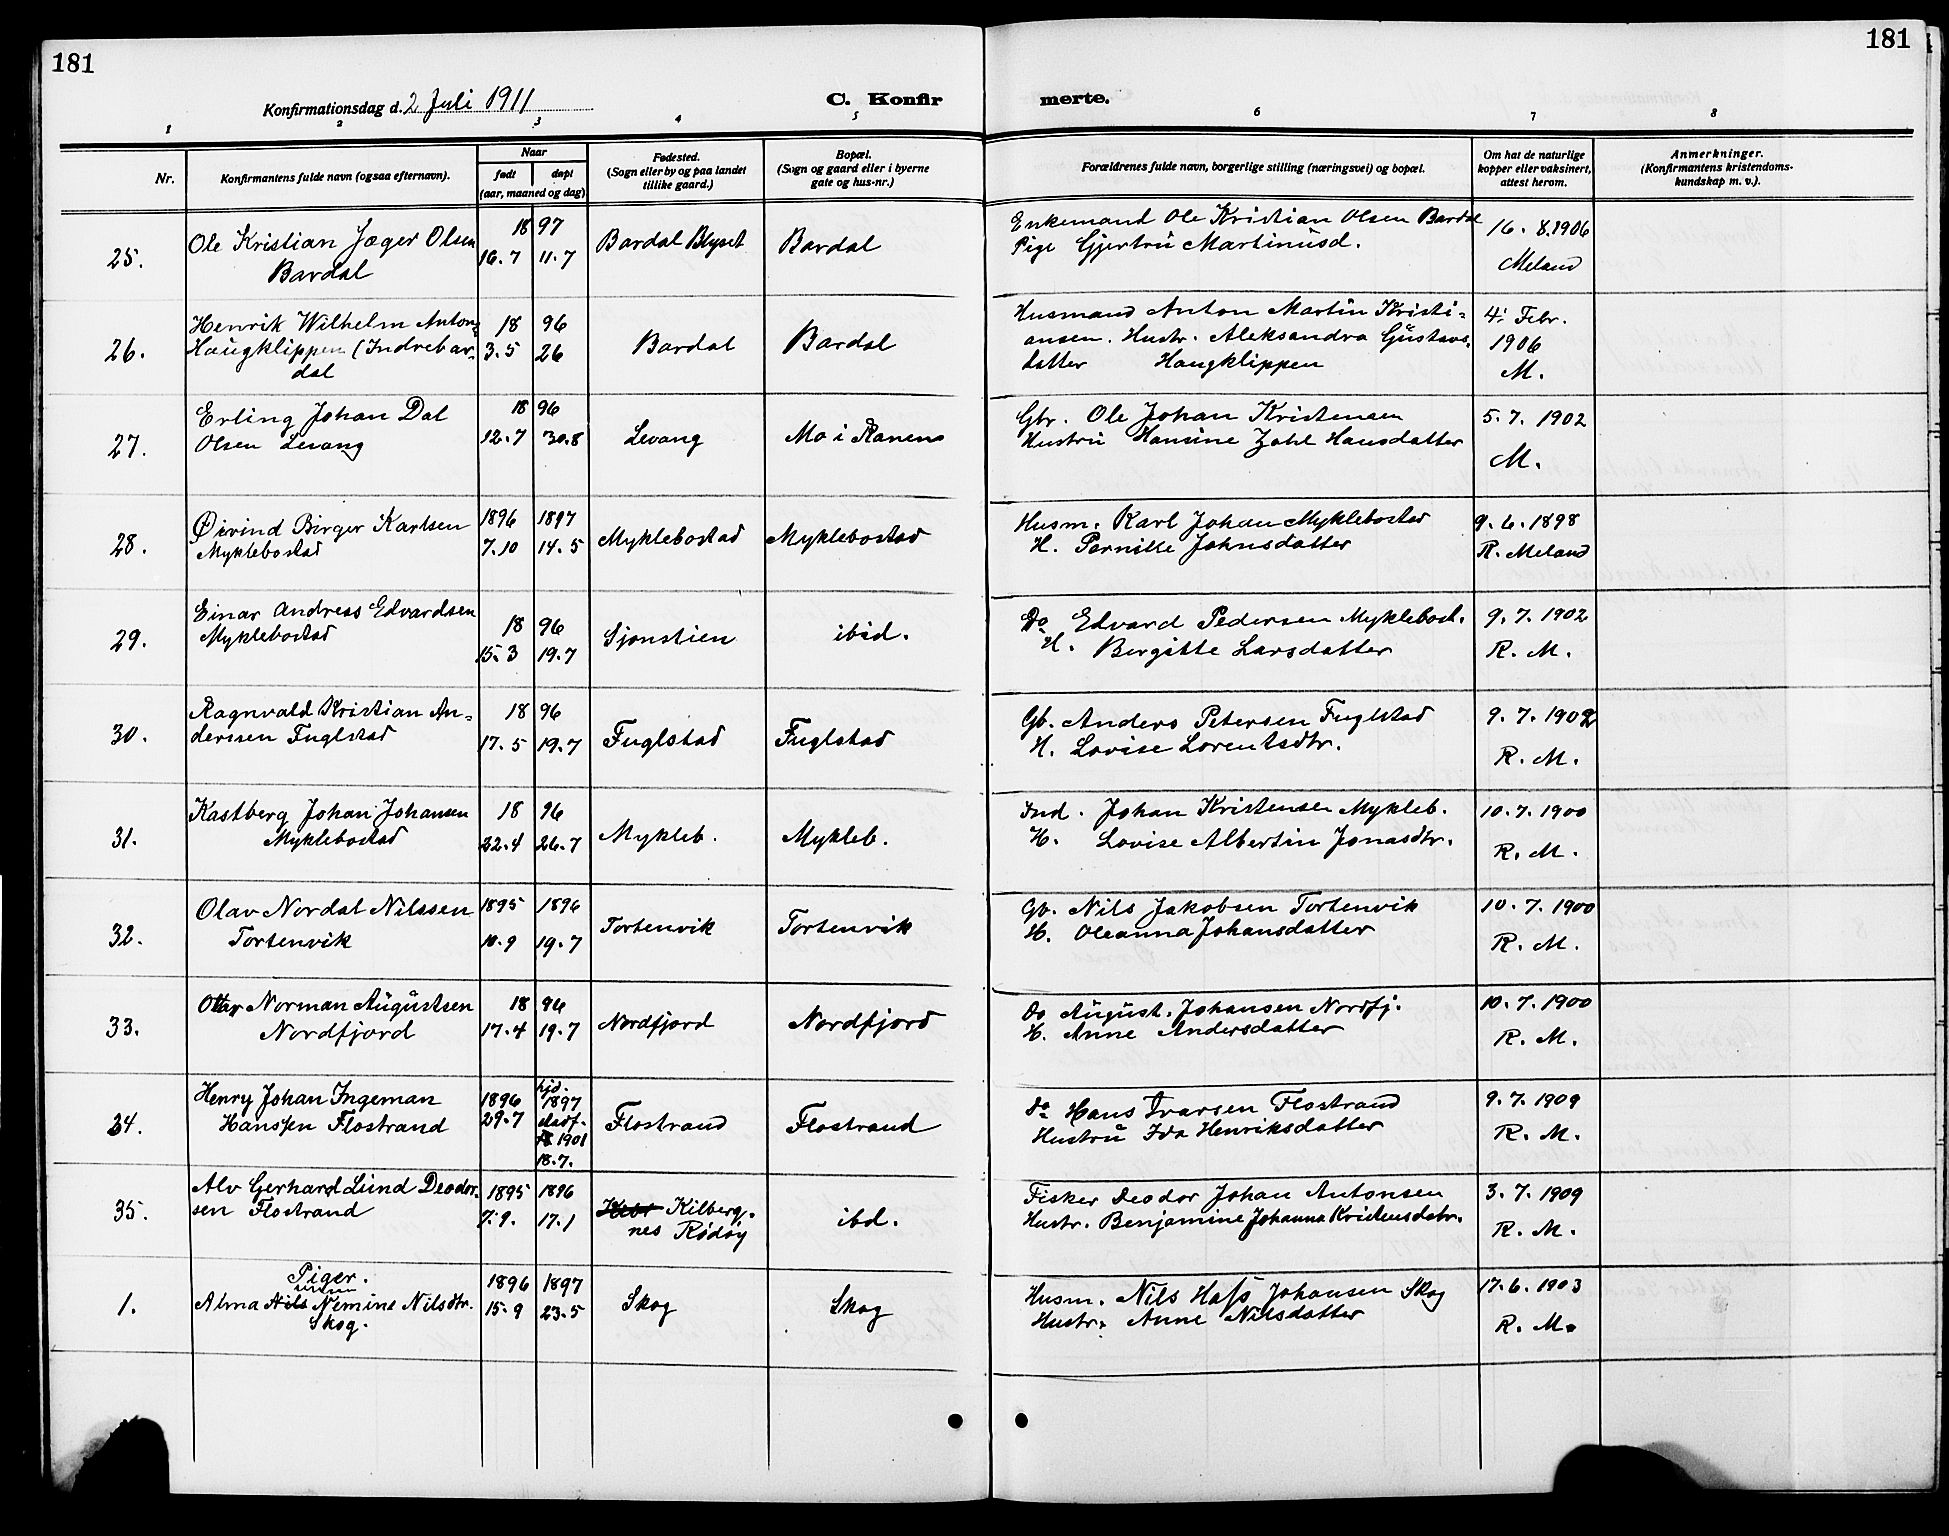 181
181
Konfirmationsdag d. 2 Juli 1911
C. Konfir
merte.
1 2 3 4 5 6 7 8
Nr.
Konfirmantens fulde navn (ogsaa efternavn).
Naar
født døpt
(aar, maaned og dag)
Fødested.
(Sogn eller by og paa landet
tillike gaard.)
Bopæl.
(Sogn og gaard eller i byerne
gate og hus-nr.)
Forældrenes fulde navn, borgerlige stilling (næringsvei) og bopæl.
Om hat de naturlige
kopper eller vaksinert,
attest herom.
Anmerkninger.
(Konfirmantens kristendoms-
kundskap m. v.).
25.
Ole Kristian Jæger Olsen
Bardal
18 97
16.7 11.7
Bardal Blyset
Bardal
Enkemand Ole Kristian Olsen Bardal
Pige Gjertru Martinusd.
16. 8.1906
Meland
26.
Henrik Wilhelm Anton
Haugklippen (Indrebar-
dal
18 96
3.5 26
Bardal
Bardal
Husmand Anton Martin Kristi-
ansen. Hustr. Aleksandra Gustavs-
datter Haugklippen
4. Febr.
1906
M.
27.
Erling Johan Dal
Olsen Levang
18 96
12.7 30.8
Levang
Mo i Ranen
Gbr. Ole Johan Kristensen
Hustru Hansine Zahl Hansdatter
5.7. 1902
M.
28.
Øivind Birger Karlsen
Myklebostad
1896 1897
7.10 14.5
Myklebostad
Myklebostad
Husm. Karl Johan Myklebostad
H. Pernille Johnsdatter
9.6.1898
R. Meland
29.
Einar Andreas Edvardsen
Myklebostad
18 96
15.3 19.7
Sjonstien
ibid.
Do Edvard Pedersen Myklebost.
H. Bergitte Larsdatter
9.7. 1902
R. M.
30.
Ragnvald Kristian An-
derssen Fuglstad
18 96
17.5 19.7
Fuglstad
Fuglstad
Gb. Anders Petersen Fuglstad
H. Lovise Lorentsdtr.
9.7.1902
R. M.
31.
Kastberg Johan Johansen
Myklebostad
18 96
22.4 26.7
Mykleb.
Mykleb.
Ind. Johan Kristensen Mykleb.
H. Lovise Albertin Jonasdtr.
10.7.1900
R. M.
32.
Olav Nordal Nilssen
Tortenvik
1895 1896
10.9 19.7
Tortenvik
Tortenvik
Gb. Nils Jakobsen Tortenvik
H. Oleanna Johansdatter
10.7.1900
R. M.
33.
Ottar Norman Augustsen
Nordfjord
18 96
17.4 19.7
Nordfjord
Nordfjord
Do August Johansen Nordfj.
H. Anne Andersdatter
10.7.1900
R. M.
34.
Henry Johan Ingeman
Hanssen Flostrand
1896
29.7
hjd.
1897
stadf.
1901
18.7.
Flostrand
Flostrand
Do Hans Ivarsen Flostrand
Hustru Ida Henriksdatter
9.7.1909
R. M.
35.
Alv Gerhard Lund Deodor-
sen Flostrand
1895 1896
7.9. 17.1
Kilberg-
nes Rødøy
ibd.
Fisker Deodor Johan Antonsen
Hustr. Benjamine Johanna Kristensdatr.
3.7. 1909
R. M.
Piger.
1.
Alma Nils Nemine Nilsdtr.
Skog.
1896 1897
15.9 23.5
Skog
Skog
Husm. Nils Hass Johansen Skog
Hustr. Anne Nilsdatter
17.6. 1903
R. M.